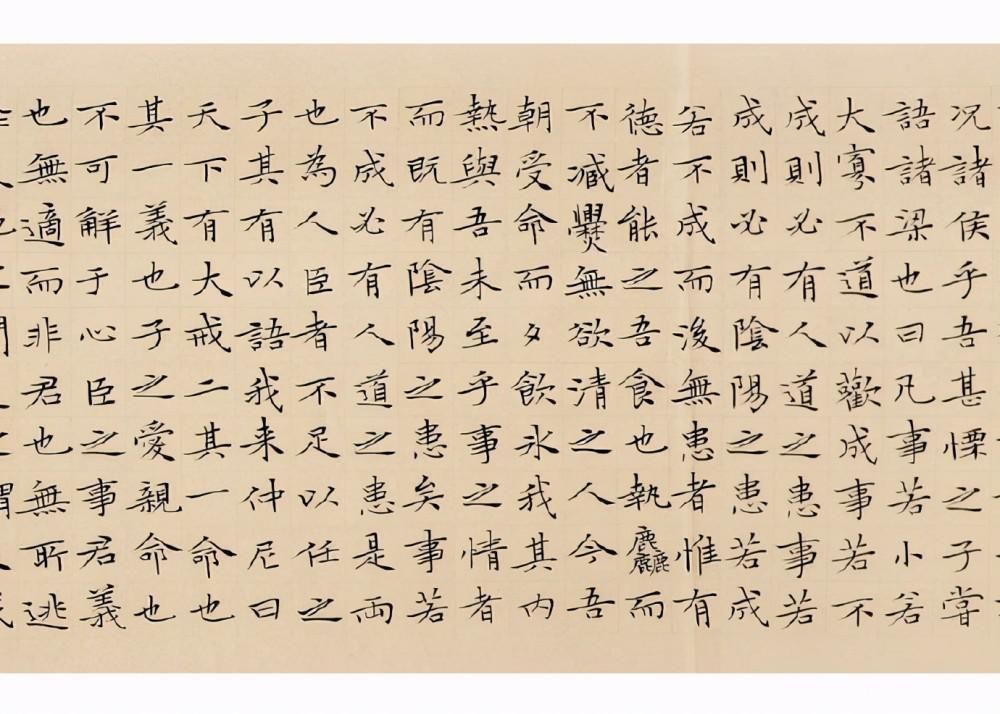 况諸侯乎吾甚慄之子嘗
語諸梁也曰凡事若小若
大寡不道以歡成事若不
成則必有人道之患事若
成則必有陰陽之患若成
若不成而後無患者惟有
德者能之吾食也執麤而
不臧爨無欲清之人今吾
朝受命而夕飲冰我其內
熱與吾未至乎事之情者
而既有陰陽之患矣事若
不成必有人道之患是兩
也為人臣者不足以任之
子其有以語我来仲尼曰
天下有大戒二其一命也
其一義也子之愛親命也
不可解于心臣之事君義
也無適而非君也無所逃